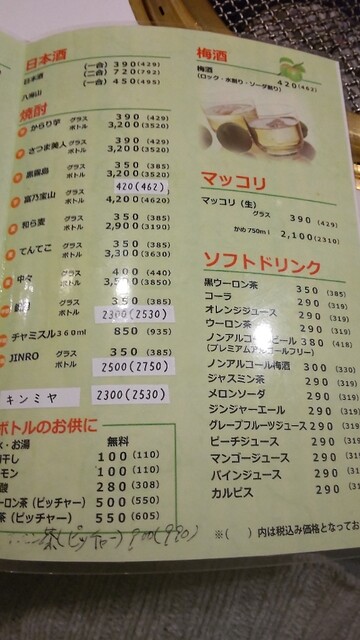 日本酒
日本酒 (一合) 390(429)
(二合) 720(792)
八海山 (一合) 450(495)
焼酎
からり芋 グラス 390 (429)
ボトル 3,200(3520)
さつま美人 グラス 390 (429)
ボトル 3,200(3520)
黒霧島 グラス 350 (385)
ボトル 3,200(3520)
富乃宝山 グラス 420(462)
ボトル 4,200(4620)
和ら麦 グラス 350 (385)
ボトル 2,900(3190)
てんてこ グラス 350 (385)
ボトル 3,300(3630)
中々 グラス 400 (440)
ボトル 3,500(3850)
グラス 350(385)
ボトル 2300(2530)
チャミスル360ml 850 (935)
JINRO グラス 350 (385)
ボトル 2500(2750)
キンミヤ 2300(2530)
ボトルのお供に
水・お湯 無料
梅干し 100(110)
レモン 100(110)
炭酸 280(308)
ウーロン茶(ピッチャー) 500(550)
茶(ピッチャー) 550(605)
茶(ピッチャー) 900(990)
梅酒
梅酒 420(462)
(ロック・水割り・ソーダ割り)
マッコリ
マッコリ(生)
グラス 390(429)
かめ750ml 2,100(2310)
ソフトドリンク
黒ウーロン茶 350(385)
コーラ 290(319)
オレンジジュース 290(319)
ウーロン茶 290(319)
ノンアルコールビール 380(418)
(プレミアムアルコールフリー)
ノンアルコール梅酒 300(330)
ジャスミン茶 290(319)
メロンソーダ 290(319)
ジンジャーエール 290(319)
グレープフルーツジュース 290(319)
ピーチジュース 290(319)
マンゴージュース 290(319)
パインジュース 290(319)
カルピス 290(31
※( )内は税込み価格となってお